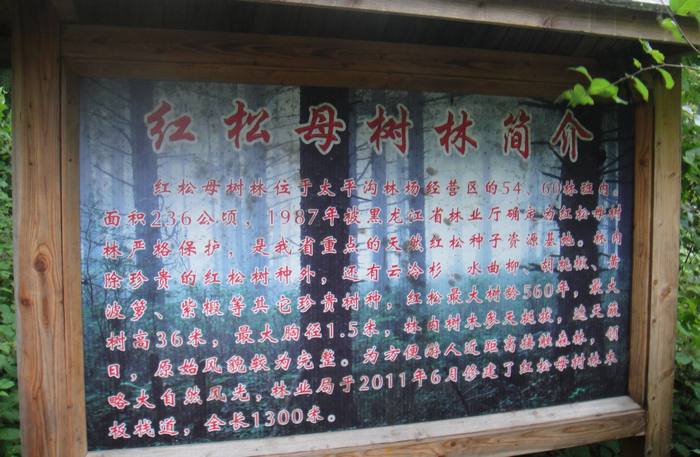 红松母树林简介
红松母树林位于太平沟林场经营区的54、60林班内，
面积236公顷，1987年被黑龙江省林业厅确定为红松母树
林严格保护，是我省重点的天然红松种子资源基地。林内
除珍贵的红松树种外，还有云冷杉、水曲柳、胡桃楸、黄
波萝、紫椴等其它珍贵树种，红松最大树龄560年，最大
树高36米，最大胸径1.5米，林内树木参天挺拔，遮天蔽
日，原始风貌较为完整。为方便游人近距离接触森林，领
略大自然风光，林业局于2011年6月修建了红松母树林木
板栈道，全长1300米。